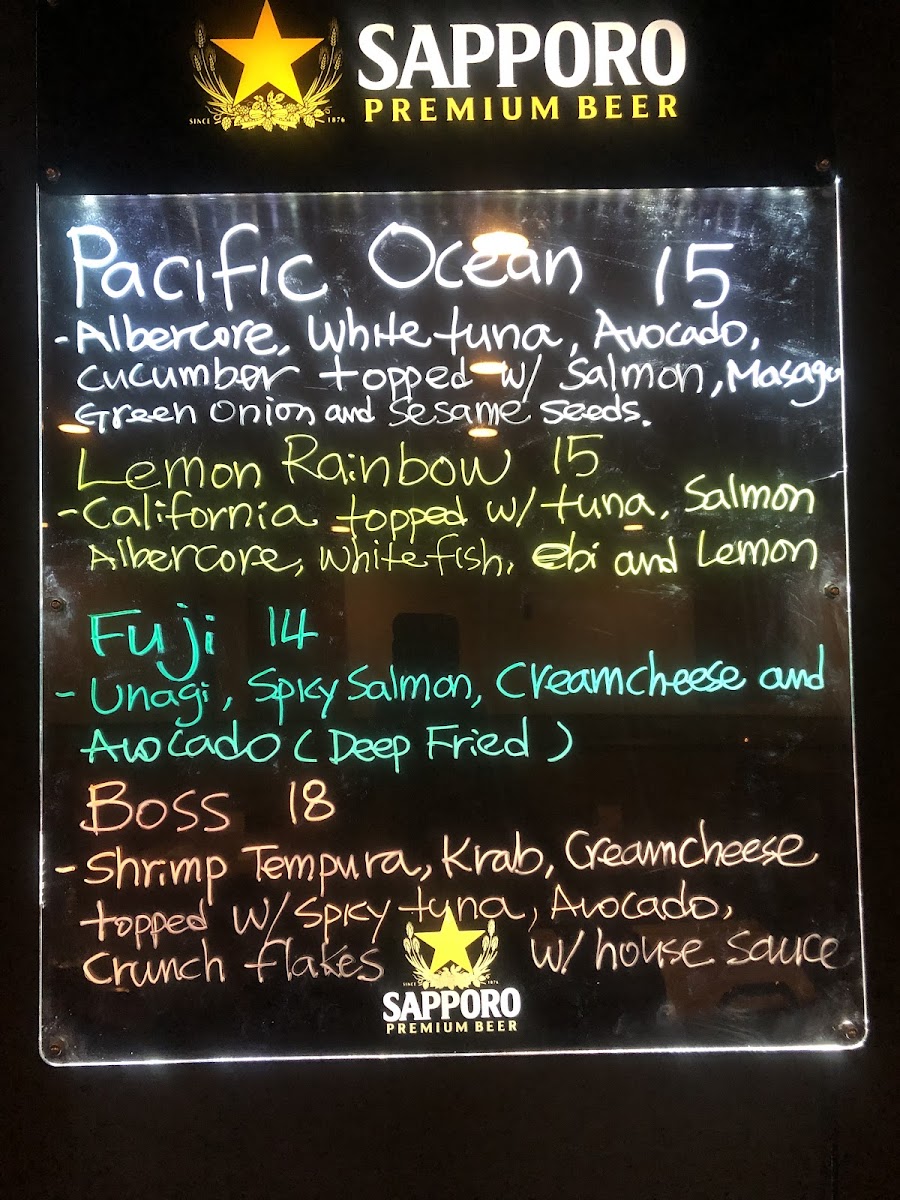 SAPPORO
PREMIUM BEER
SINCE 1876
Pacific Ocean 15
- Albercore, White tuna, Avocado,
cucumber topped w/ Salmon, Masago
Green Onion and Sesame seeds.
Lemon Rainbow 15
- California topped w/ tuna, Salmon
Albercore, white fish, ebi and Lemon
Fuji 14
- Unagi, Spicy Salmon, Creamcheese and
Avocado (Deep Fried)
Boss 18
- Shrimp Tempura, Krab, Creamcheese
topped w/ Spicy tuna, Avocado,
Crunch flakes w/ house sauce
SINCE 1876
SAPPORO
PREMIUM BEER